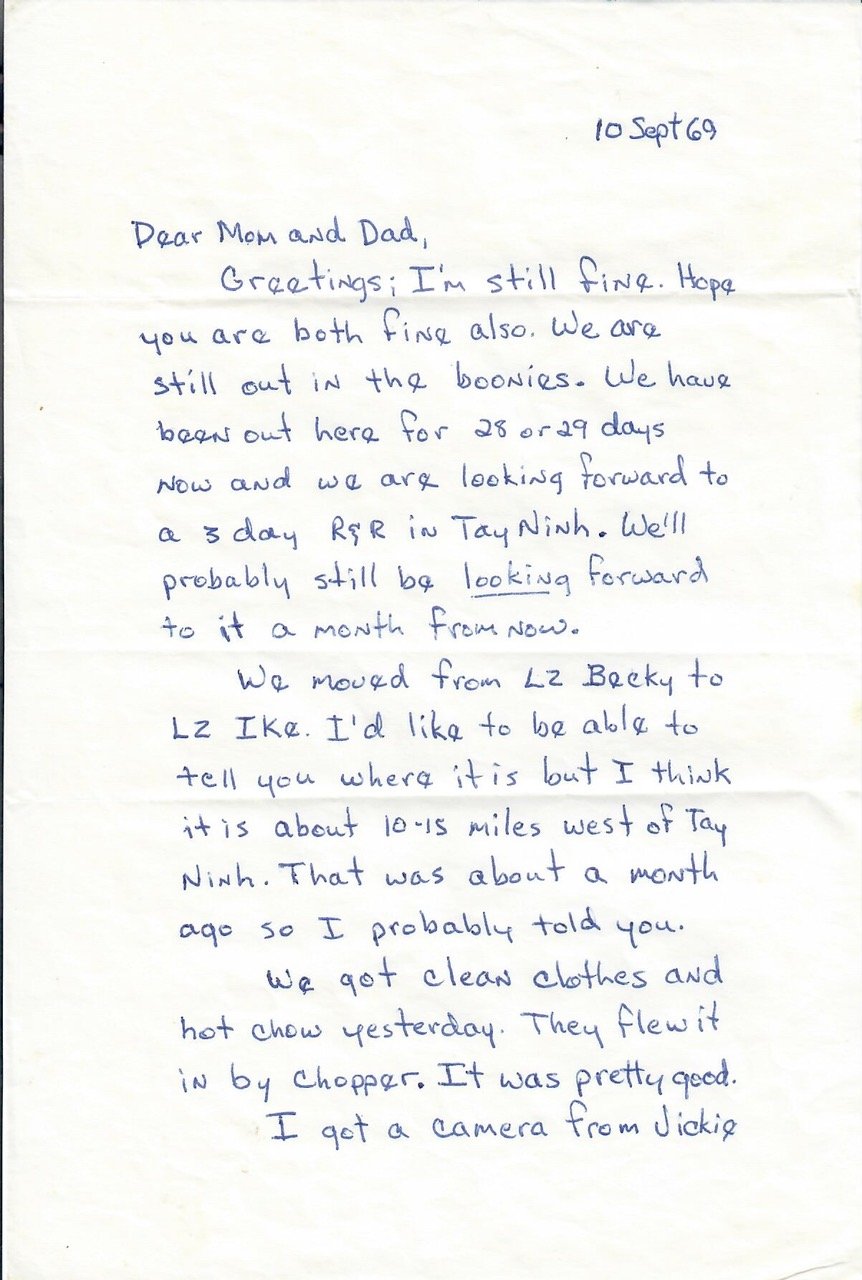 10 Sept 69
Dear Mom and Dad,
Greetings; I'm still fine. Hope
you are both fine also. We are
still out in the boonies. We have
been out here for 28 or 29 days
now and we are looking forward to
a 3 day R&R in Tay Ninh. We'll
probably still be looking forward
to it a month from now.
We moved from LZ Becky to
LZ Ike. I'd like to be able to
tell you where it is but I think
it is about 10-15 miles west of Tay
Ninh. That was about a month
ago so I probably told you.
We got clean clothes and
hot chow yesterday. They flew it
in by chopper. It was pretty good.
I got a camera from Jickie